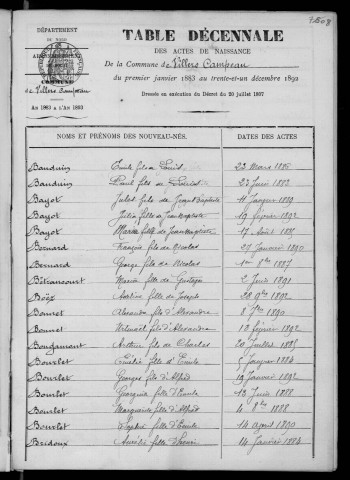 DÉPARTEMENT
TABLE DÉCENNALE
DES ACTES DE NAISSANCE
De la Commune de Villers Campeau
du premier janvier 1883 au trente-et-un décembre 1892
Dressée en exécution du Décret du 20 juillet 1807
COMMUNE
de Villers Campeau
AN 1883 A L'AN 1893
NOMS ET PRÉNOMS DES NOUVEAU-NÉS.
DATES DES ACTES
Bauduin Emile fils de Louis 22 Mars
Bauduin Paul fils de Louis 23 Juin 1882
Bayot Jules fils de Jean Baptiste 11 Janvier 1889
Bayot Julia fille de Jean Baptiste 19 février 1892
Bayot Maria fille de Jean Baptiste 17 Août
Bernard François fils de Nicolas 27 Janvier 1890
Bernard George fils de Nicolas 1er 8bre 1887
Bétrancourt Maria fille de Gustave 2 Juin 1891
Boëz fille de Joseph 28 9bre 1892
Bonnet Alexandre fils d'Alexandre 8 1890
Bonnet fils d'Alexandre 18 février 1892
Bougamont Arthur fils de Charles 20 Juillet 1885
Bourlet Emilie fille d'Emile 5 Janvier 1884
Bourlet Georges fils d'Alfred 19 Janvier 1892
Bourlet Georgina fille d'Emile 13 Juin 1888
Bourlet Marguerite fille d'Alfred 4 8bre 1888
Bourlet Sophie fille d'Emile 14 avril 1890
Bridoux Aurélie fille 14 Janvier 1884